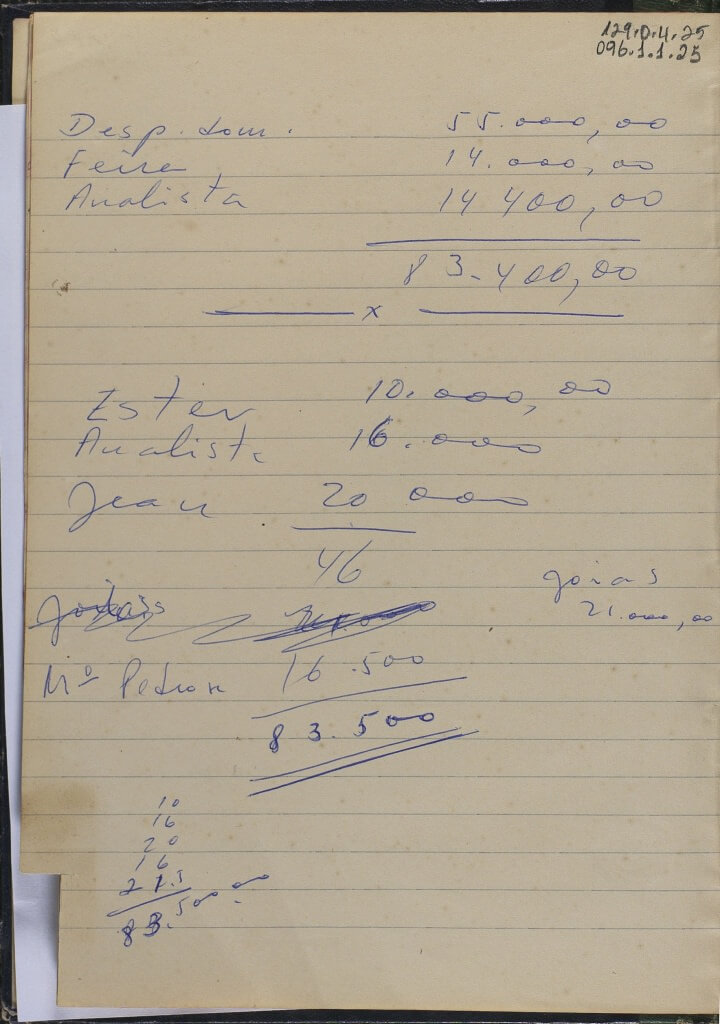 129.0.4.25
096.1.1.25
Desp. dom. 55.000,00
Feira 14.000,00
Analista 14 400,00
83.400,00
x
Ester 10.000,00
Analista 16.000
Jean 20 000
46
goias
21.000,00
Goiás 21.000
Mª Pedron 16.500
83.500
10
16
20
16
21.5
83.500,00